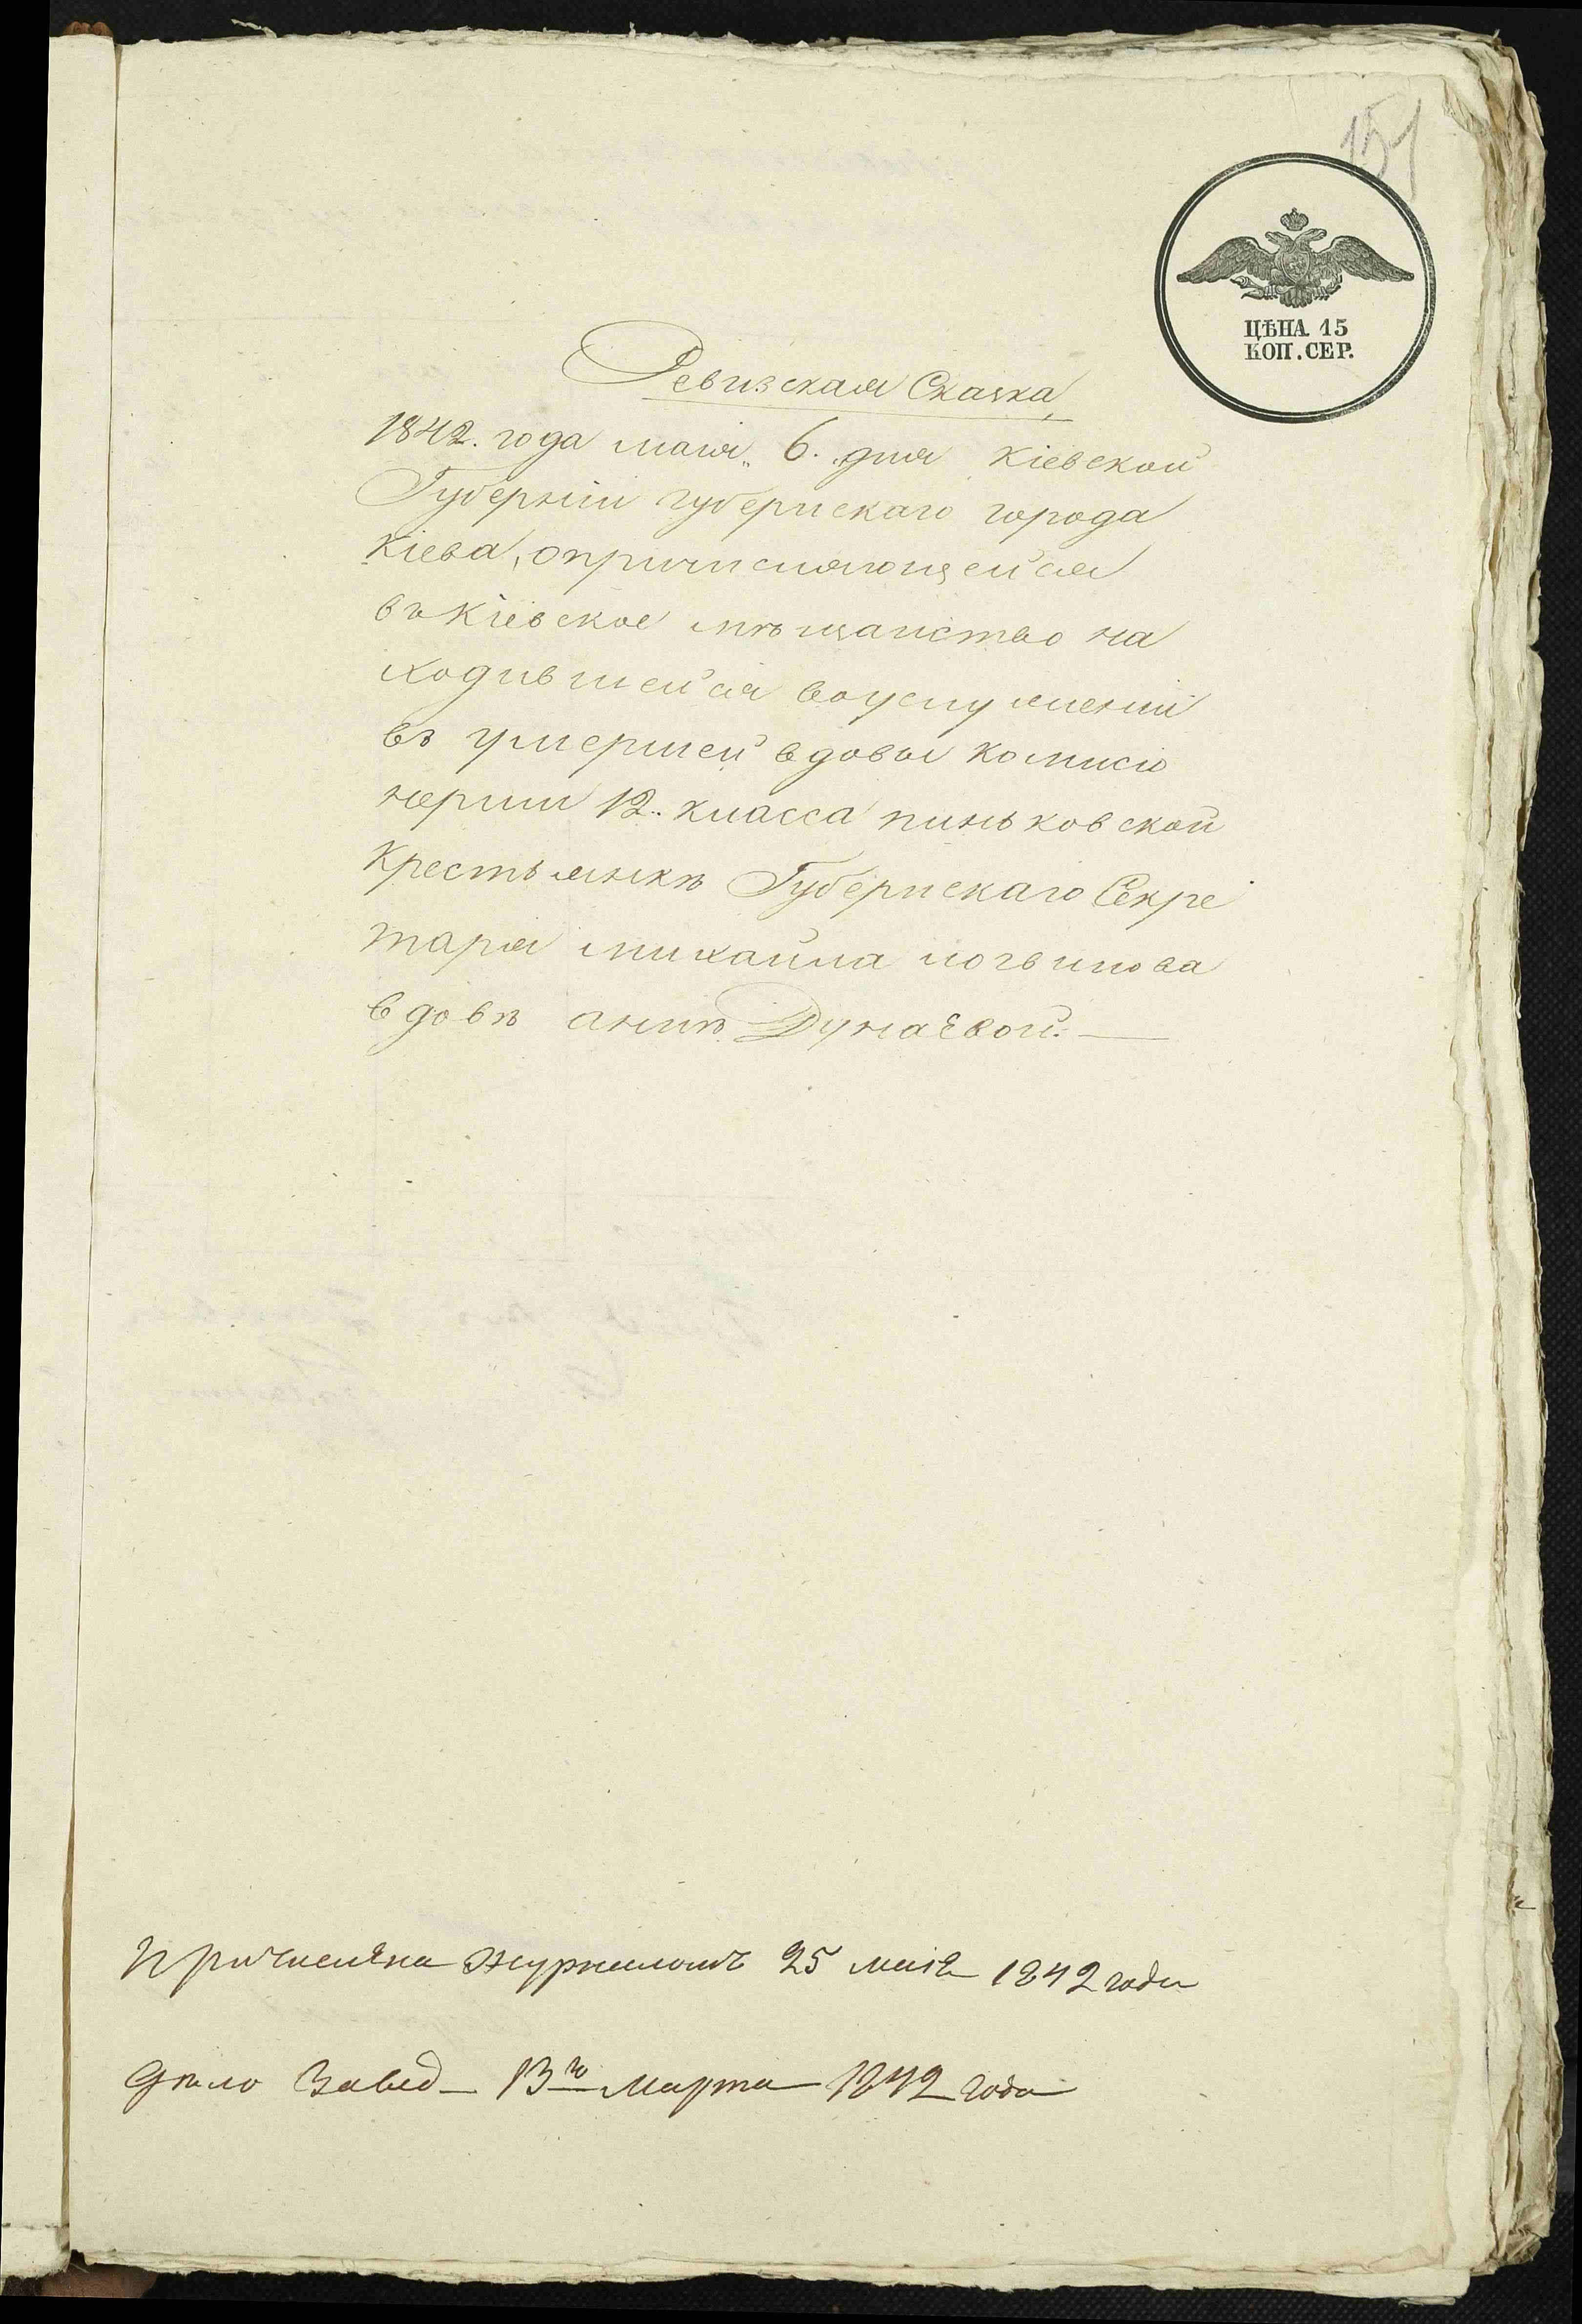 151
ЦѢНА 15
КОП. СЕР.
Ревизская Сказка,
1842. года маія „6. дня Кіевской
Губерніи губернскаго города
Кіева, опричисляющейся
въ Кіевское мѣщанство на
ходившейся воуслуженіи
въ умершей вдовы комисіо
нерши 12. класса пиньковской
Крестьянкѣ Губернскаго Секре
таря михайла логвинова
вдовѣ аннѣ Дунаевой.
Причислена журналомъ 25 маія 1842 года
Дѣло Завед 13го Марта 1842 года